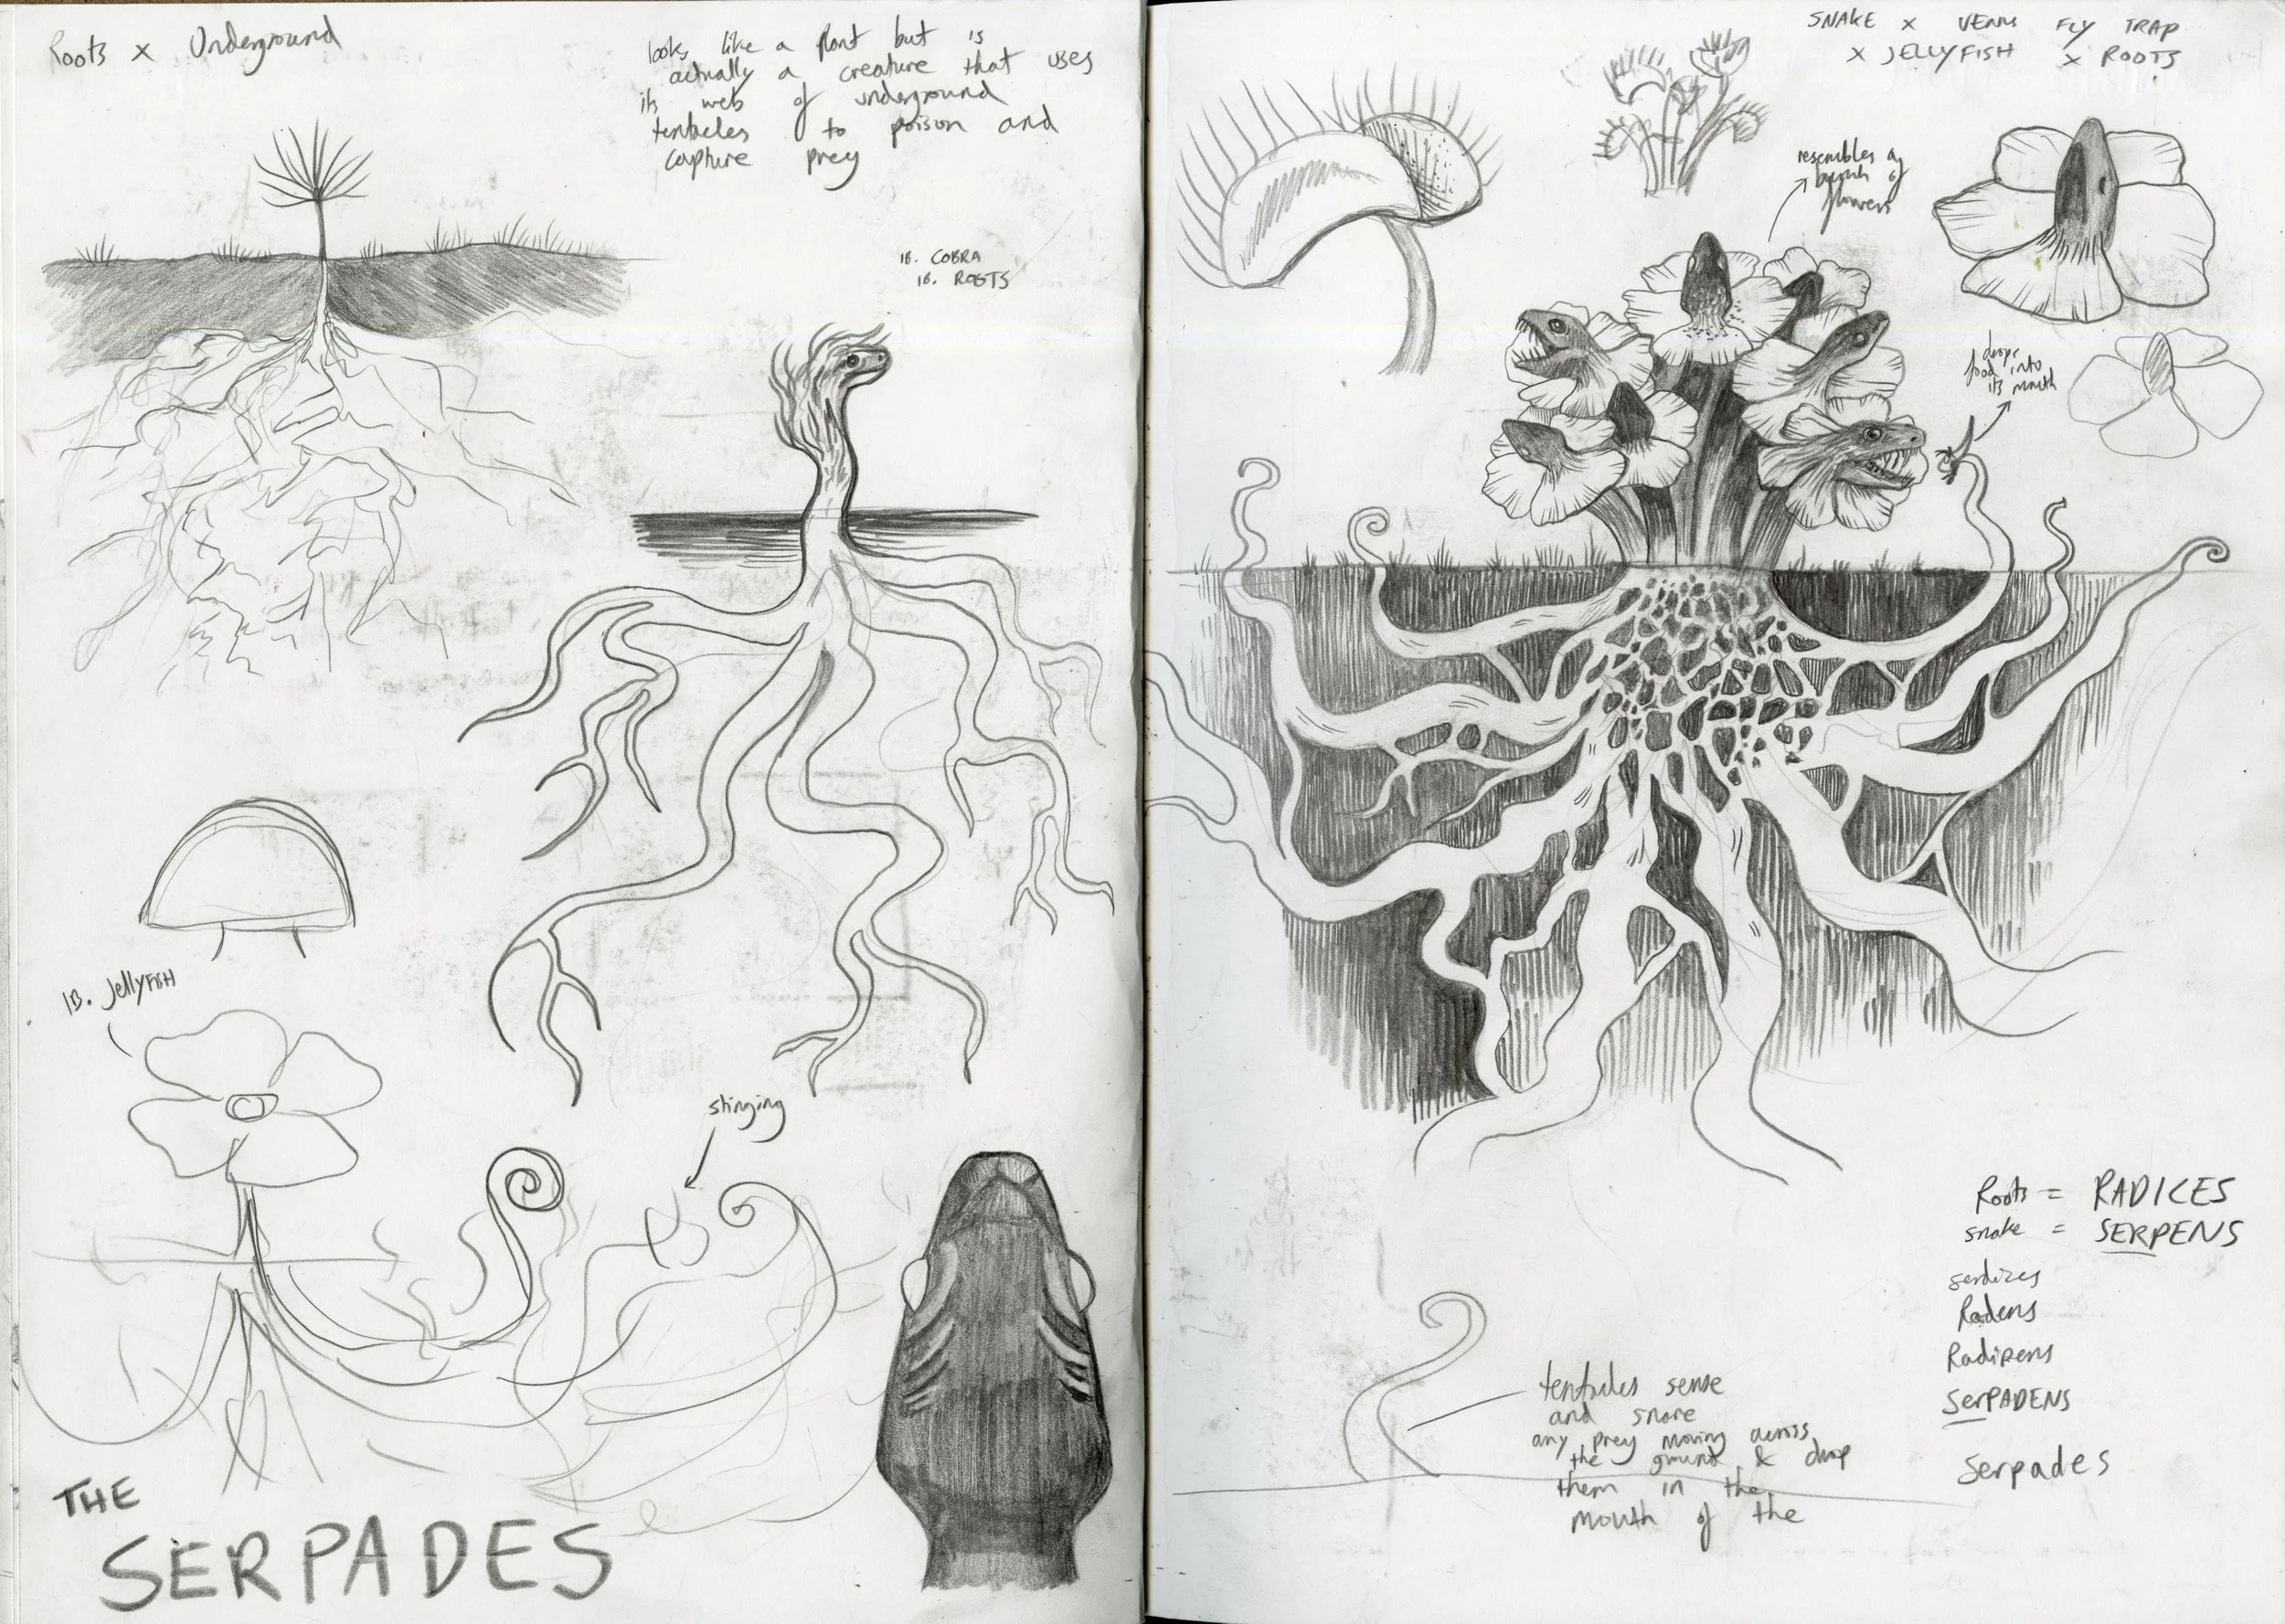 Roots x Underground
looks like a plant but is
actually a creature that uses
its web of underground
tentacles to poison and
capture prey
1B. COBRA
1B. ROOTS
1B. JellyFISH
stinging
THE
SERPADES
SNAKE x VENUS FLY TRAP
x JELLYFISH x ROOTS
resembles a
bunch of
flowers
drops
food into
its mouth
Roots = RADICES
snake = SERPENS
serdizes
Radens
Radipens
SerPADENS
Serpades
tentacles sense
and snare
any prey moving across
the ground & drop
them in the
mouth of the